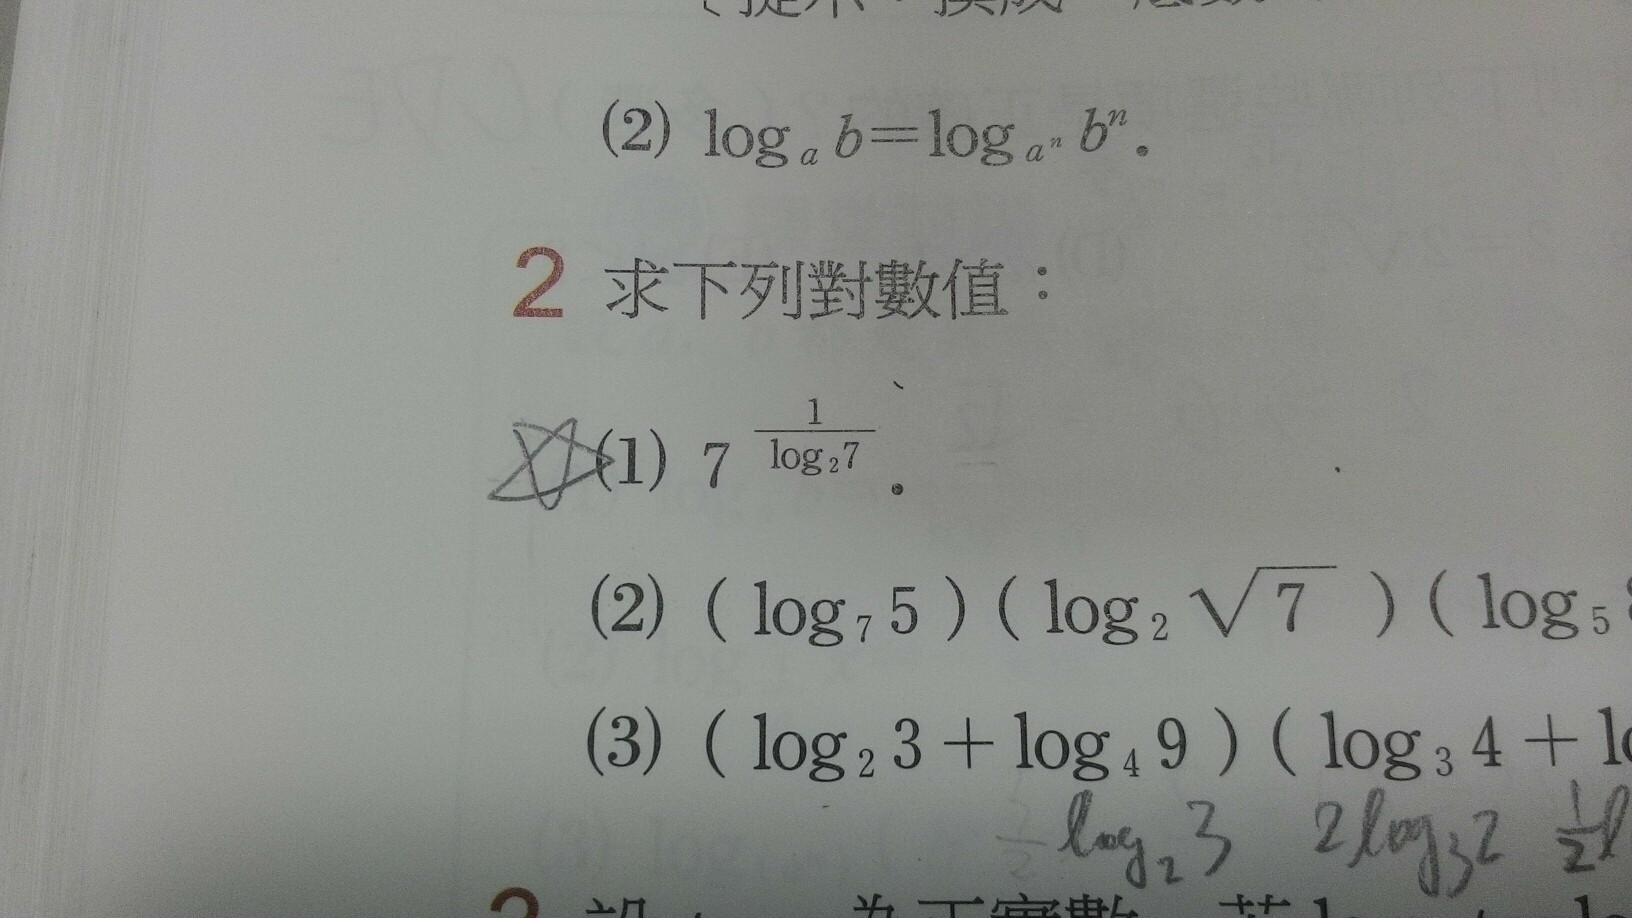 (2) logₐ b=log_{aⁿ} bⁿ.
2 求下列對數值：
(1) 7^{\frac{1}{log₂7}}.
(2) ( log₇ 5 ) ( log₂ √7 ) ( log₅
(3) ( log₂ 3 + log₄ 9 ) ( log₃ 4 +
log₂ 3 2log₃2 ½